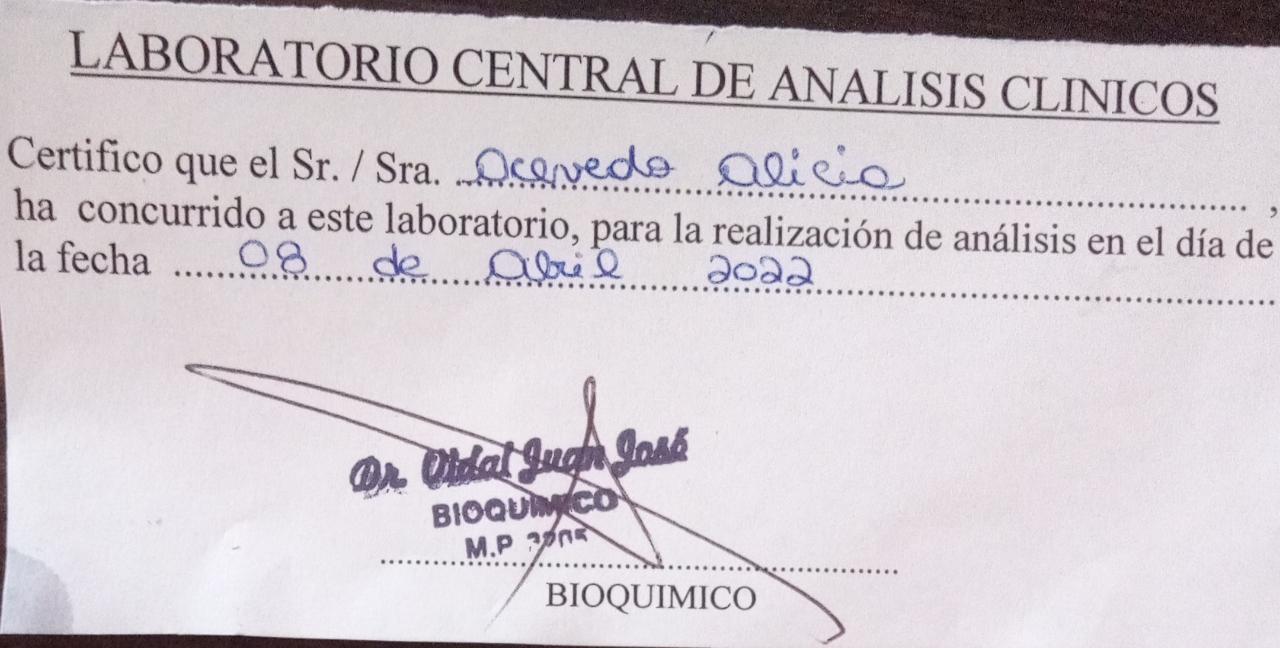 LABORATORIO CENTRAL DE ANALISIS CLINICOS
Certifico que el Sr. / Sra. Acevedo Alicia,
ha concurrido a este laboratorio, para la realización de análisis en el día de
la fecha 08 de Abril 2022
Dr. Vidal Juan José
BIOQUIMICO
M.P
BIOQUIMICO